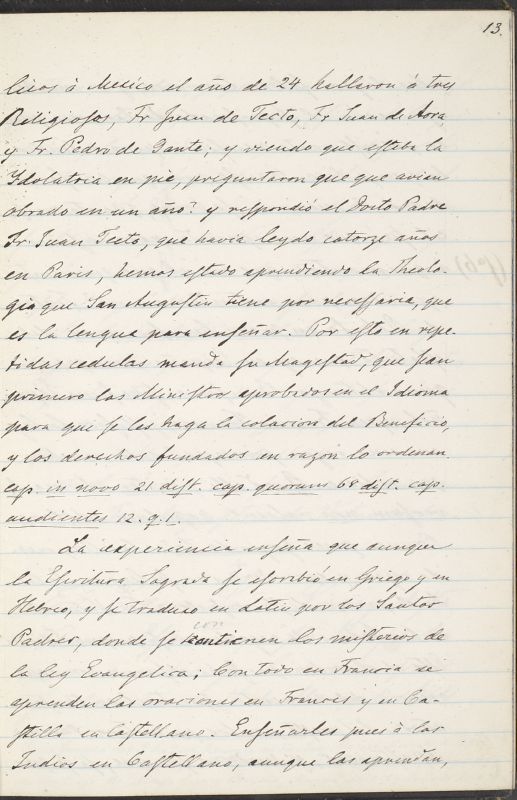 13.
licos à Mexico el año de 24 hallaron à tres
Religiosos, Fr Juan de Tecto, Fr Juan de Aora,
y Fr. Pedro de Gante; y viendo que estaba la
Ydolatria en pie, preguntaron que que avian
obrado en un año? y respondió el Docto Padre
Fr. Juan Tecto, que havia leydo catorze años
en Paris, hemos estado aprendiendo la Theolo-
gia que San Augustin tiene por necessaria, que
es la lengua para enseñar. Por esto en repe-
tidas cedulas manda su Magestad, que sean
primero los Ministros aprobados en el Idioma
para que se les haga la colacion del Beneficio,
y los derechos fundados en razon lo ordenan.
cap. in novo 21 dist. cap. quorum 68 dist. cap.
audientes 12. q. 1.
La experiencia enseña que aunque
la Escritura Sagrada se escribió en Griego y en
Hebreo, y se traduxo en Latin por los Santos
Padres, donde se contienen los misterios de
la ley Evangelica; Con todo en Francia se
aprenden las oraciones en Frances y en Ca-
stilla en Castellano. Enseñarles pues à los
Indios en Castellano, aunque las aprendan,